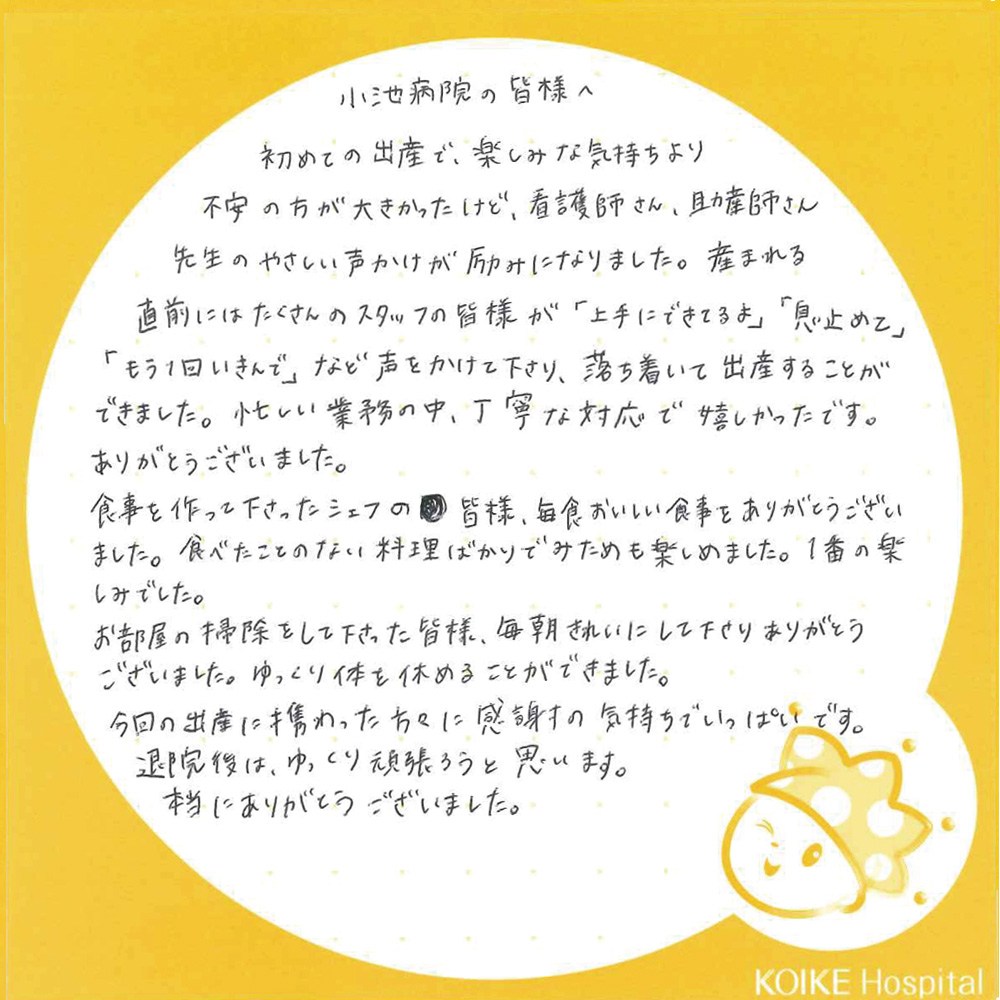 小池病院の皆様へ
初めての出産で、楽しみな気持ちより
不安の方が大きかったけど、看護師さん、助産師さん
先生のやさしい声かけが励みになりました。産まれる
直前にはたくさんのスタッフの皆様が「上手にできてるよ」「息止めて」
「もう1回いきんで」など声をかけて下さり、落ち着いて出産することが
できました。忙しい業務の中、丁寧な対応で嬉しかったです。
ありがとうございました。
食事を作って下さったシェフの皆様、毎食おいしい食事をありがとうござい
ました。食べたことのない料理ばかりでみためも楽しめました。1番の楽
しみでした。
お部屋の掃除をして下さった皆様、毎朝きれいにして下さりありがとう
ございました。ゆっくり体を休めることができました。
今回の出産に携わった方々に感謝の気持ちでいっぱいです。
退院後は、ゆっくり頑張ろうと思います。
本当にありがとうございました。
KOIKE Hospital